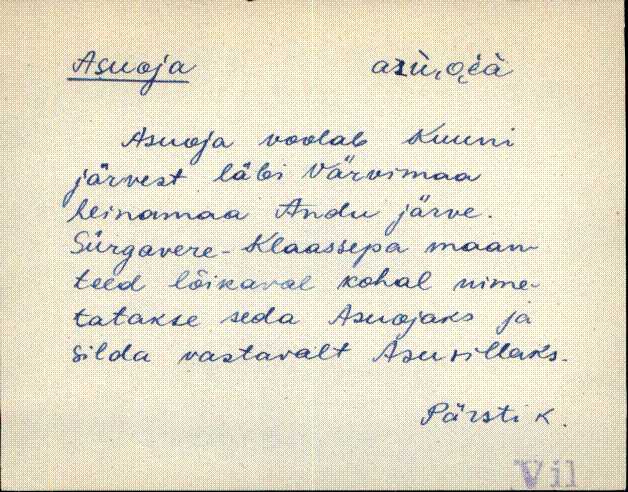 Asuoja
Asuoja voolab Kuuni
järvest läbi Värvimaa
heinamaa Andu järve.
Sürgavere-Klaassepa maan-
teed lõikaval kohal nime-
tatakse seda Asuojaks ja
silda vastavalt Asusillaks.
Pärsti k.
Vil